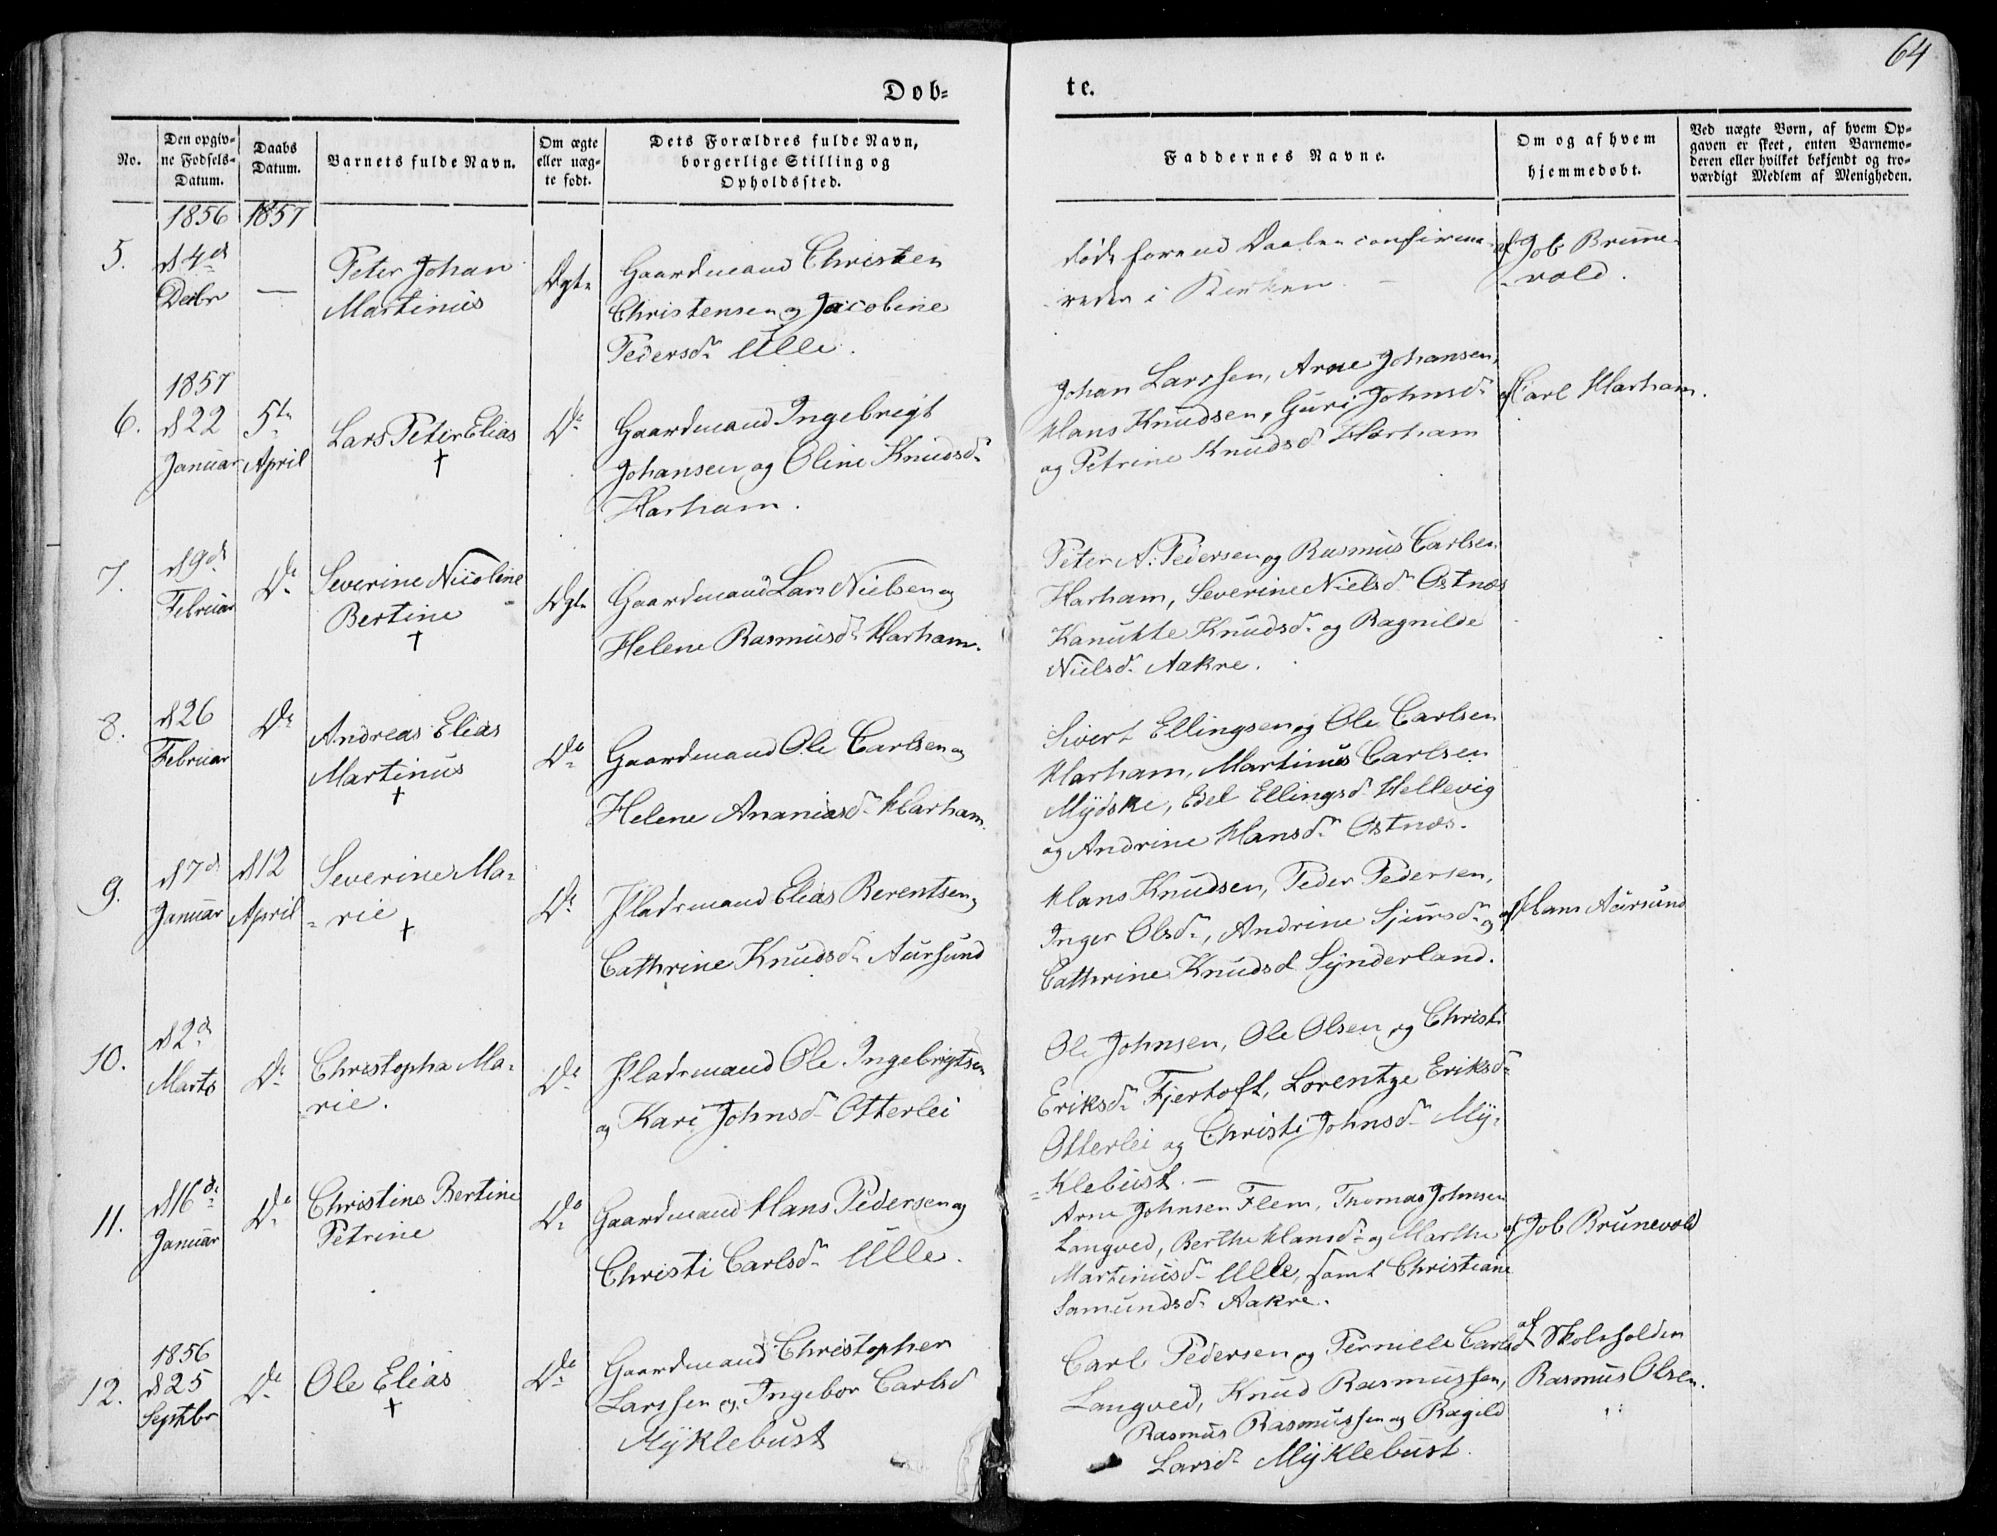 64
Døb-
te.
No.
Den opgiv-
ne Fødsels-
Datum.
Daabs
Datum.
Barnets fulde Navn.
Om ægte
eller uæg-
te født.
Dets Forældres fulde Navn,
borgerlige Stilling og
Opholdssted.
Faddernes Navne.
Om og af hvem
hjemmedøbt.
Ved uægte Børn, af hvem Op-
gaven er skeet, enten Barnemo-
deren eller hvilket bekjendt og tro-
værdigt Medlem af Menigheden.
1856
1857
5.
d 4de
Decbr
—
Peter Johan
Martinus
Ægte
Gaardmand Christen
Christensen og Jacobine
Pedersd. Ulle.
død forend Daaben
i Kirken. —
af Job Brune-
vold.
1857
6.
d 22
Januar
5te
April
Lars Peter Elias
†
Do
Gaardmand Ingebrigt
Johansen og Oline Knudsd.
Harham.
Johan Larssen, Arne Johansen,
Hans Knudsen, Guri Johnsd.
og Petrine Knudsd Harham
af Carl Harham.
7.
d 9de
Februar
Do
Severine Nicoline
Bertine
†
Ægte
Gaardmand Lars Nielsen og
Helene Rasmusd. Harham.
Peter A. Pedersen og Rasmus Carlsen
Harham, Severine Nielsd. Ostnæs
Kanutte Knudsd. og Ragnilde
Nielsd. Aakre.
8.
d 26
Februar
Do
Andreas Elias
Martinus
†
Do
Gaardmand Ole Carlsen og
Helene Ananiasd. Harham.
Sivert Ellingsen og Ole Carlsen
Harham, Martinus Carlsen
Mÿdske, Edel Ellingsd. Hellevig
og Andrine Hansd. Ostnæs.
9.
d 7de
Januar
d 12
April
Severine Ma-
rie
†
Do
Pladsmand Elias Berentsen og
Cathrine Knudsd. Aursund
Hans Knudsen, Peder Pedersen,
Inger Olsd., Andrine Sjursd. og
Cathrine Knudsd Sÿnderland.
af Hans Aursund
10.
d 2de
Marts
Do
Christopha Ma-
rie.
Do
Pladsmand Ole Ingebrigtsen
og Kari Johnsd. Otterlei
Ole Johnsen, Ole Olsen og Christi
Eriksd. Fjertoft, Lorentze Eriksd.
Otterlei og Christi Johnsd. Mÿ-
klebust. —
11.
d 16de
Januar
Do
Christine Bertine
Petrine
Do
Gaardmand Hans Pedersen og
Christi Carlsd. Ulle.
Arne Johnsen Flem, Thomas Johnsen
Langved, Berthe Hansd. og Marthe
Martinusd. Ulle, samt Christiane
Samundsd. Aakre.
af Job Brunevold
1856
12.
d 25
Septbr
Do
Ole Elias
†
Do
Gaardmand Christopher
Larssen og Ingebor Carlsd
Mÿklebust
Carl Pedersen og Pernille Carlsd
Langved, Knud Rasmussen,
Rasmus Rasmussen og Ragild
Larsd. Mÿklebust.
af Skoleholder
Rasmus Olsen.